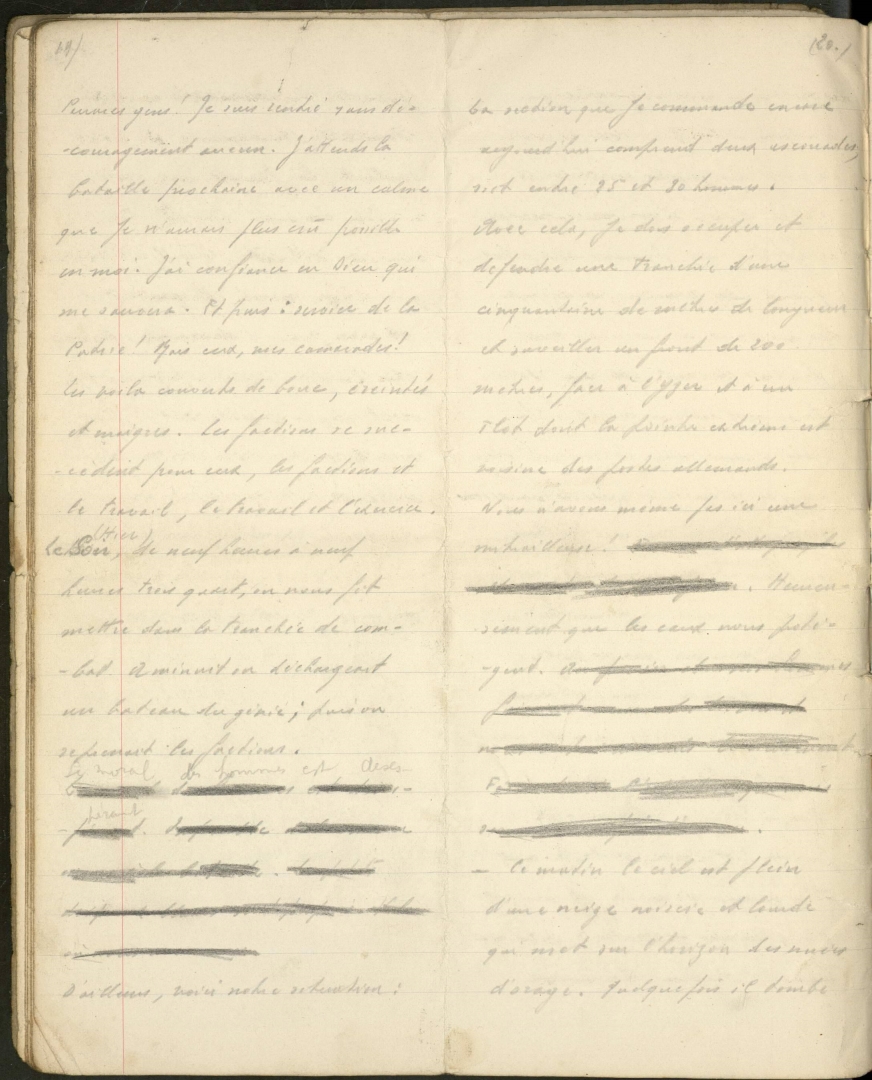 19/
Pauvres gens! Je suis rentré sans dé-
-couragement aucun. J'attends la
bataille prochaine avec un calme
que je n'aurais plus crû possible
en moi. J'ai confiance en Dieu qui
me sauvera. Et puis: service de la
Patrie! Mais eux, mes camarades!
les voilà couverts de boue, éreintés
et maigres. Les factions se suc-
-cèdent pour eux, les factions et
le travail, le travail et l'exercice.
(Hier)
Le Soir, de neuf heures à neuf
heures trois quart, on nous fit
mettre dans la tranchée de com-
-bat. A minuit on déchargeait
un bateau du génie; puis on
reprenait les factions.
Le moral des hommes est déses-
pérant
D'ailleurs, voici notre situation:
(20.)
La section que je commande encore
aujourd'hui comprend deux escouades,
soit entre 25 et 30 hommes.
Avec cela, je dois occuper et
défendre une tranchée d'une
cinquantaine de mètres de longueur
et surveiller un front de 200
mètres, face à l'Yser et à un
îlot dont la pointe extrême est
voisine des postes allemands.
Nous n'avons même pas ici une
mitrailleuse! Heureu-
-sement que les eaux nous proté-
-gent.
- Ce matin le ciel est plein
d'une neige noircie et lourde
qui met sur l'horizon des nuées
d'orage. Quelquefois il tombe